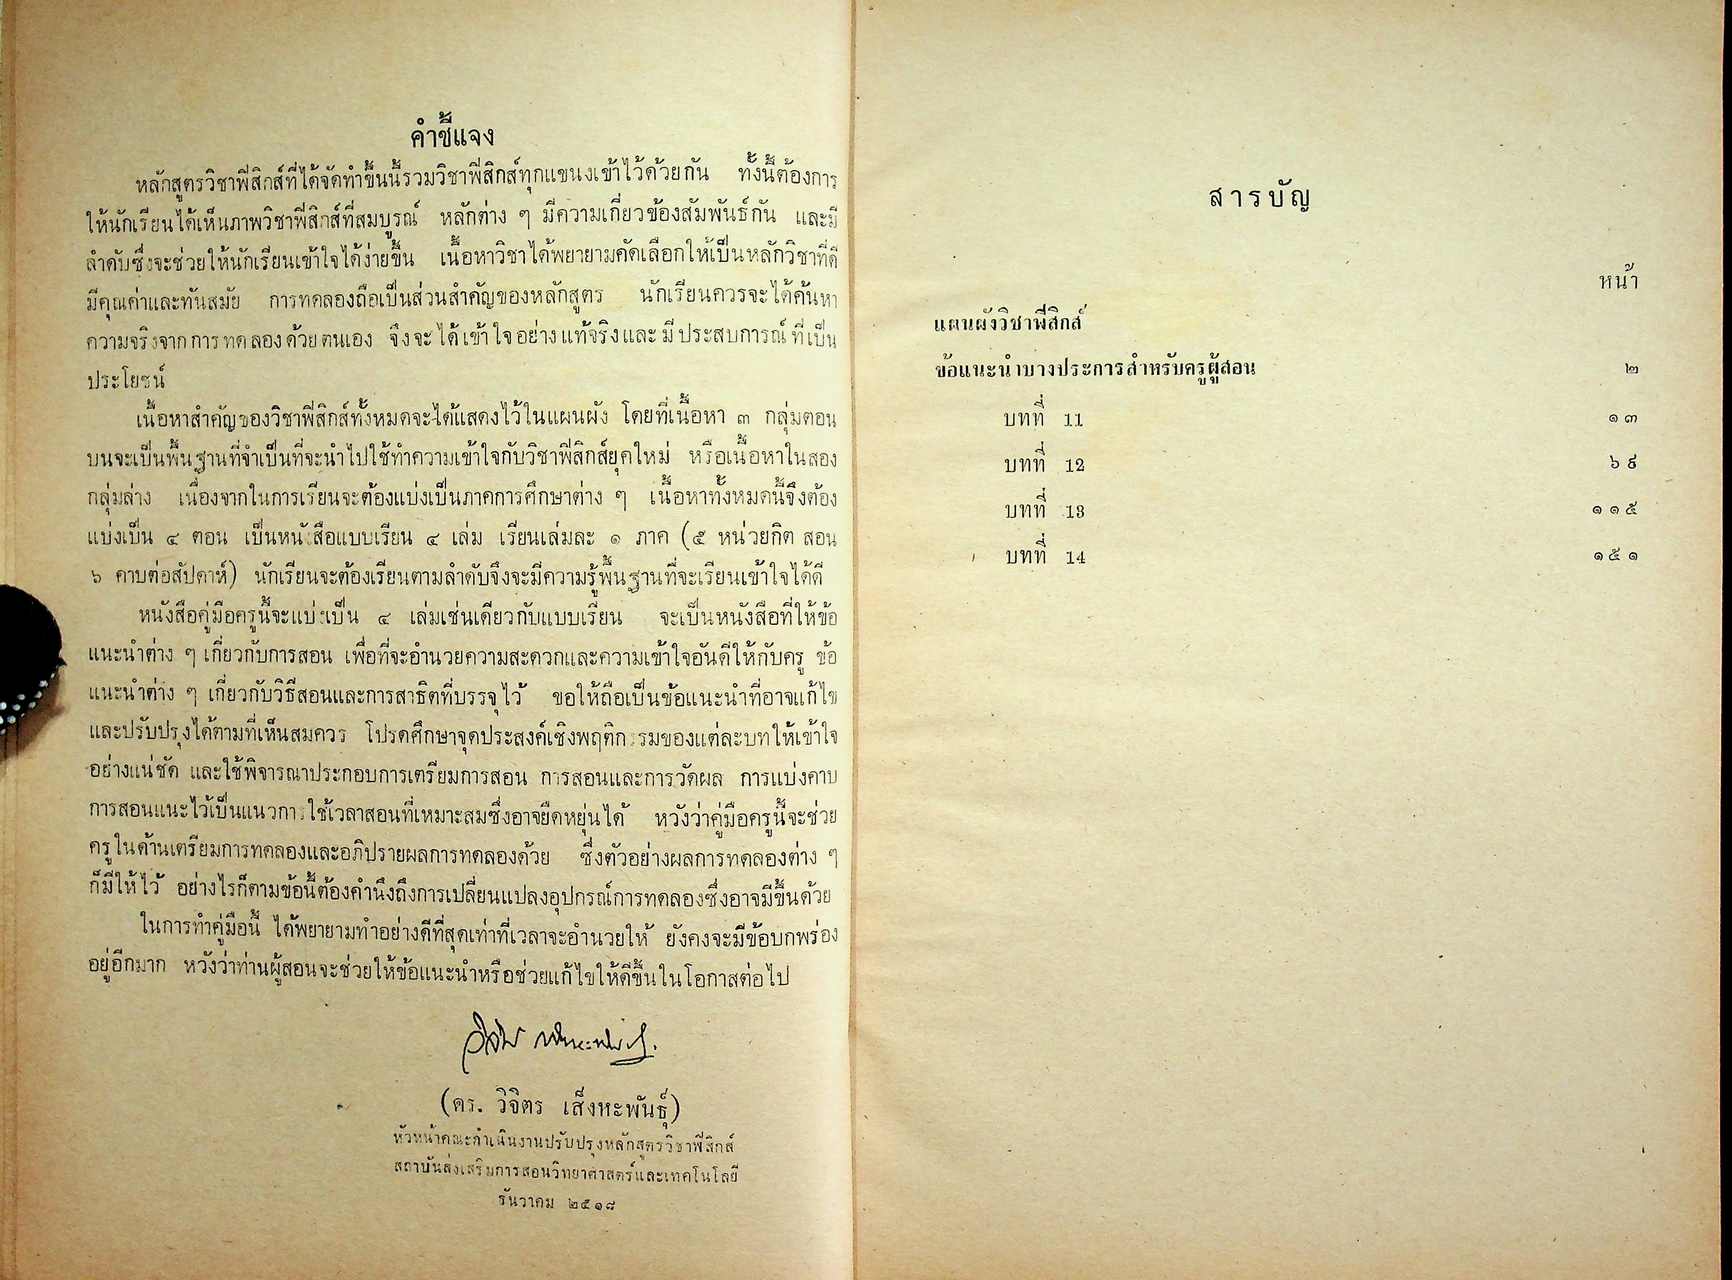 คำชี้แจง
หลักสูตรวิชาฟิสิกส์ที่ได้จัดทำขึ้นนี้รวมวิชาฟิสิกส์ทุกแขนงเข้าไว้ด้วยกัน ทั้งนี้ต้องการ
ให้นักเรียนได้เห็นภาพวิชาฟิสิกส์ที่สมบูรณ์ หลักต่าง ๆ มีความเกี่ยวข้องสัมพันธ์กัน และมี
ลำดับซึ่งจะช่วยให้นักเรียนเข้าใจได้ง่ายขึ้น เนื้อหาวิชาได้พยายามคัดเลือกให้เป็นหลักวิชาที่ดี
มีคุณค่าและทันสมัย การทดลองถือเป็นส่วนสำคัญของหลักสูตร นักเรียนควรจะได้ค้นหา
ความจริงจากการทดลองด้วยตนเอง จึงจะได้เข้าใจอย่างแท้จริงและมีประสบการณ์ที่เป็น
ประโยชน์
เนื้อหาสำคัญของวิชาฟิสิกส์ทั้งหมดจะได้แสดงไว้ในแผนผัง โดยที่เนื้อหา ๓ กลุ่มตอน
บนจะเป็นพื้นฐานที่จำเป็นที่จะนำไปใช้ทำความเข้าใจกับวิชาฟิสิกส์ยุคใหม่ หรือเนื้อหาในสอง
กลุ่มล่าง เนื่องจากในการเรียนจะต้องแบ่งเป็นภาคการศึกษาต่าง ๆ เนื้อหาทั้งหมดนี้จึงต้อง
แบ่งเป็น ๔ ตอน เป็นหนังสือแบบเรียน ๔ เล่ม เรียนเล่มละ ๑ ภาค (๕ หน่วยกิต สอน
๖ คาบต่อสัปดาห์) นักเรียนจะต้องเรียนตามลำดับจึงจะมีความรู้พื้นฐานที่จะเรียนเข้าใจได้ดี
หนังสือคู่มือครูนี้จะแบ่งเป็น ๔ เล่มเช่นเดียวกับแบบเรียน จะเป็นหนังสือที่ให้ข้อ
แนะนำต่าง ๆ เกี่ยวกับการสอน เพื่อที่จะอำนวยความสะดวกและความเข้าใจอันดีให้กับครู ข้อ
แนะนำต่าง ๆ เกี่ยวกับวิธีสอนและการสาธิตที่บรรจุไว้ ขอให้ถือเป็นข้อแนะนำที่อาจแก้ไข
และปรับปรุงได้ตามที่เห็นสมควร โปรดศึกษาจุดประสงค์เชิงพฤติกรรมของแต่ละบทให้เข้าใจ
อย่างแน่ชัด และใช้พิจารณาประกอบการเตรียมการสอน การสอนและการวัดผล การแบ่งคาบ
การสอนแนะไว้เป็นแนวการใช้เวลาสอนที่เหมาะสมซึ่งอาจยืดหยุ่นได้ หวังว่าคู่มือครูนี้จะช่วย
ครูในด้านเตรียมการทดลองและอภิปรายผลการทดลองด้วย ซึ่งตัวอย่างผลการทดลองต่าง ๆ
ก็มีให้ไว้ อย่างไรก็ตามข้อนี้ต้องคำนึงถึงการเปลี่ยนแปลงอุปกรณ์การทดลองซึ่งอาจมีขึ้นด้วย
ในการทำคู่มือนี้ ได้พยายามทำอย่างดีที่สุดเท่าที่เวลาจะอำนวยให้ ยังคงจะมีข้อบกพร่อง
อยู่อีกมาก หวังว่าท่านผู้สอนจะช่วยให้ข้อแนะนำหรือช่วยแก้ไขให้ดีขึ้นในโอกาสต่อไป
(ดร. วิจิตร เส็งหะพันธุ์)
หัวหน้าคณะดำเนินงานปรับปรุงหลักสูตรวิชาฟิสิกส์
สถาบันส่งเสริมการสอนวิทยาศาสตร์และเทคโนโลยี
ธันวาคม ๒๕๑๘
สารบัญ
หน้า
แผนผังวิชาฟิสิกส์
ข้อแนะนำบางประการสำหรับครูผู้สอน ๒
บทที่ 11 ๑๓
บทที่ 12 ๖๘
บทที่ 13 ๑๑๕
บทที่ 14 ๑๕๑